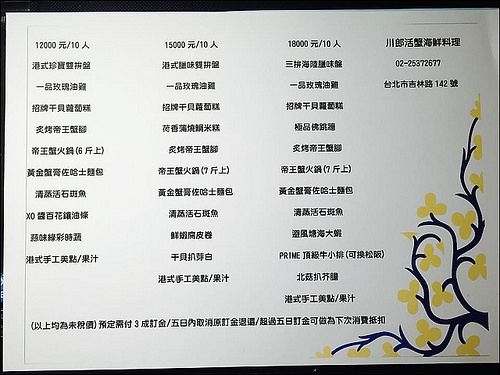 12000 元/10 人
港式珍寶雙拚盤
一品玫瑰油雞
招牌干貝蘿蔔糕
炙烤帝王蟹腳
帝王蟹火鍋(6 斤上)
黃金蟹膏佐哈士麵包
清蒸活石斑魚
XO 醬百花鑲油條
蒜味綠彩時蔬
港式手工美點/果汁
15000 元/10 人
港式臘味雙拚盤
一品玫瑰油雞
招牌干貝蘿蔔糕
荷香蒲燒鯛米糕
炙烤帝王蟹腳
帝王蟹火鍋(7 斤上)
黃金蟹膏佐哈士麵包
清蒸活石斑魚
鮮蝦腐皮卷
干貝扒芽白
港式手工美點/果汁
18000 元/10 人
三拚海陸臘味盤
一品玫瑰油雞
招牌干貝蘿蔔糕
極品佛跳牆
炙烤帝王蟹腳
帝王蟹火鍋(7 斤上)
黃金蟹膏佐哈士麵包
清蒸活石斑魚
避風塘海大蝦
PRIME 頂級牛小排(可換松阪)
北菇扒芥膽
港式手工美點/果汁
川郎活蟹海鮮料理
02-25372677
台北市吉林路 142 號
(以上均為未稅價) 預定需付 3 成訂金/五日內取消原訂金退還/超過五日訂金可做為下次消費抵扣